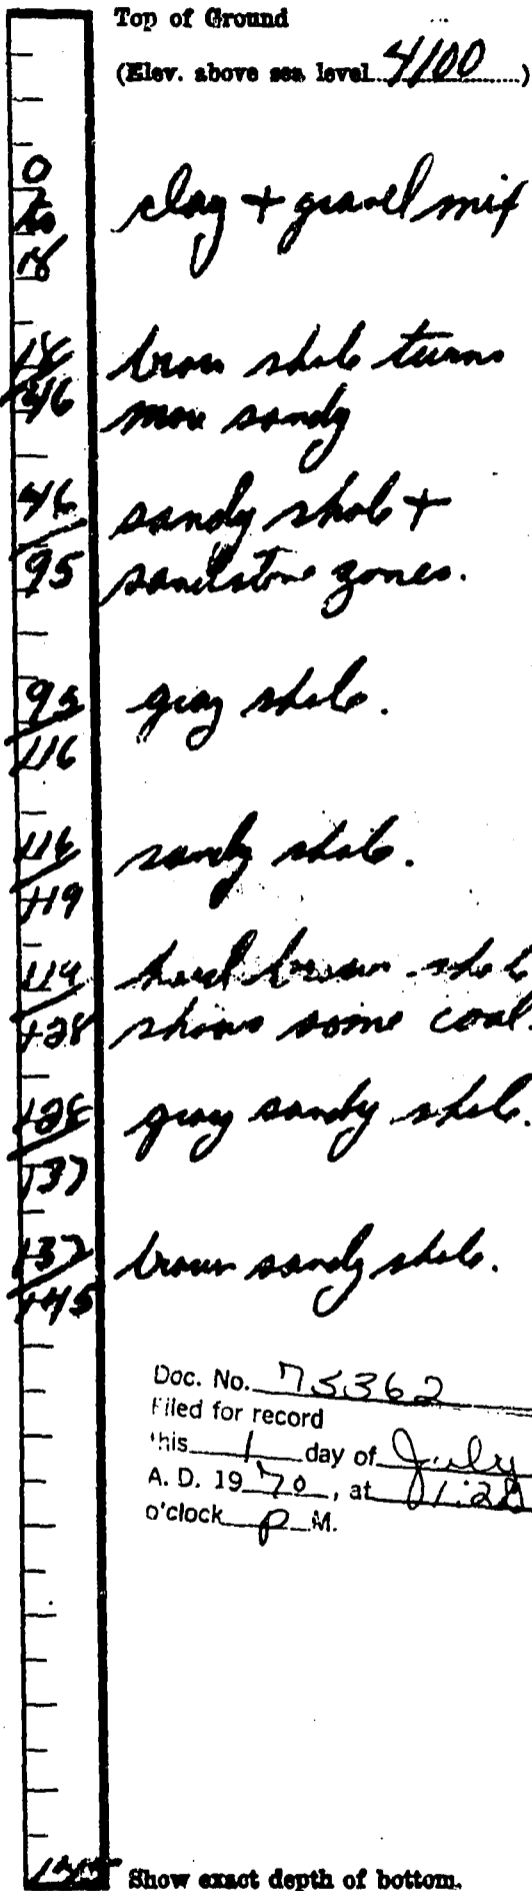 Top of Ground
(Elev. above sea level 4100)
0
to
18
clay + gravel mix
18 brown shale turns
46 more sandy
46 sandy shale +
95 sandstone zones.
95
116
gray shale.
116
119
sandy shale.
119 hard brown shale
128 shows some coal.
128
137
gray sandy shale.
137
145
brown sandy shale.
Doc. No. 75362
Filed for record
this 1 day of July
A. D. 1970, at 1:20
o'clock P M.
145 Show exact depth of bottom.